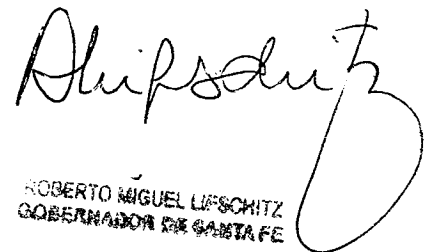 ROBERTO MIGUEL LIFSCHITZ
GOBERNADOR DE SANTA FE